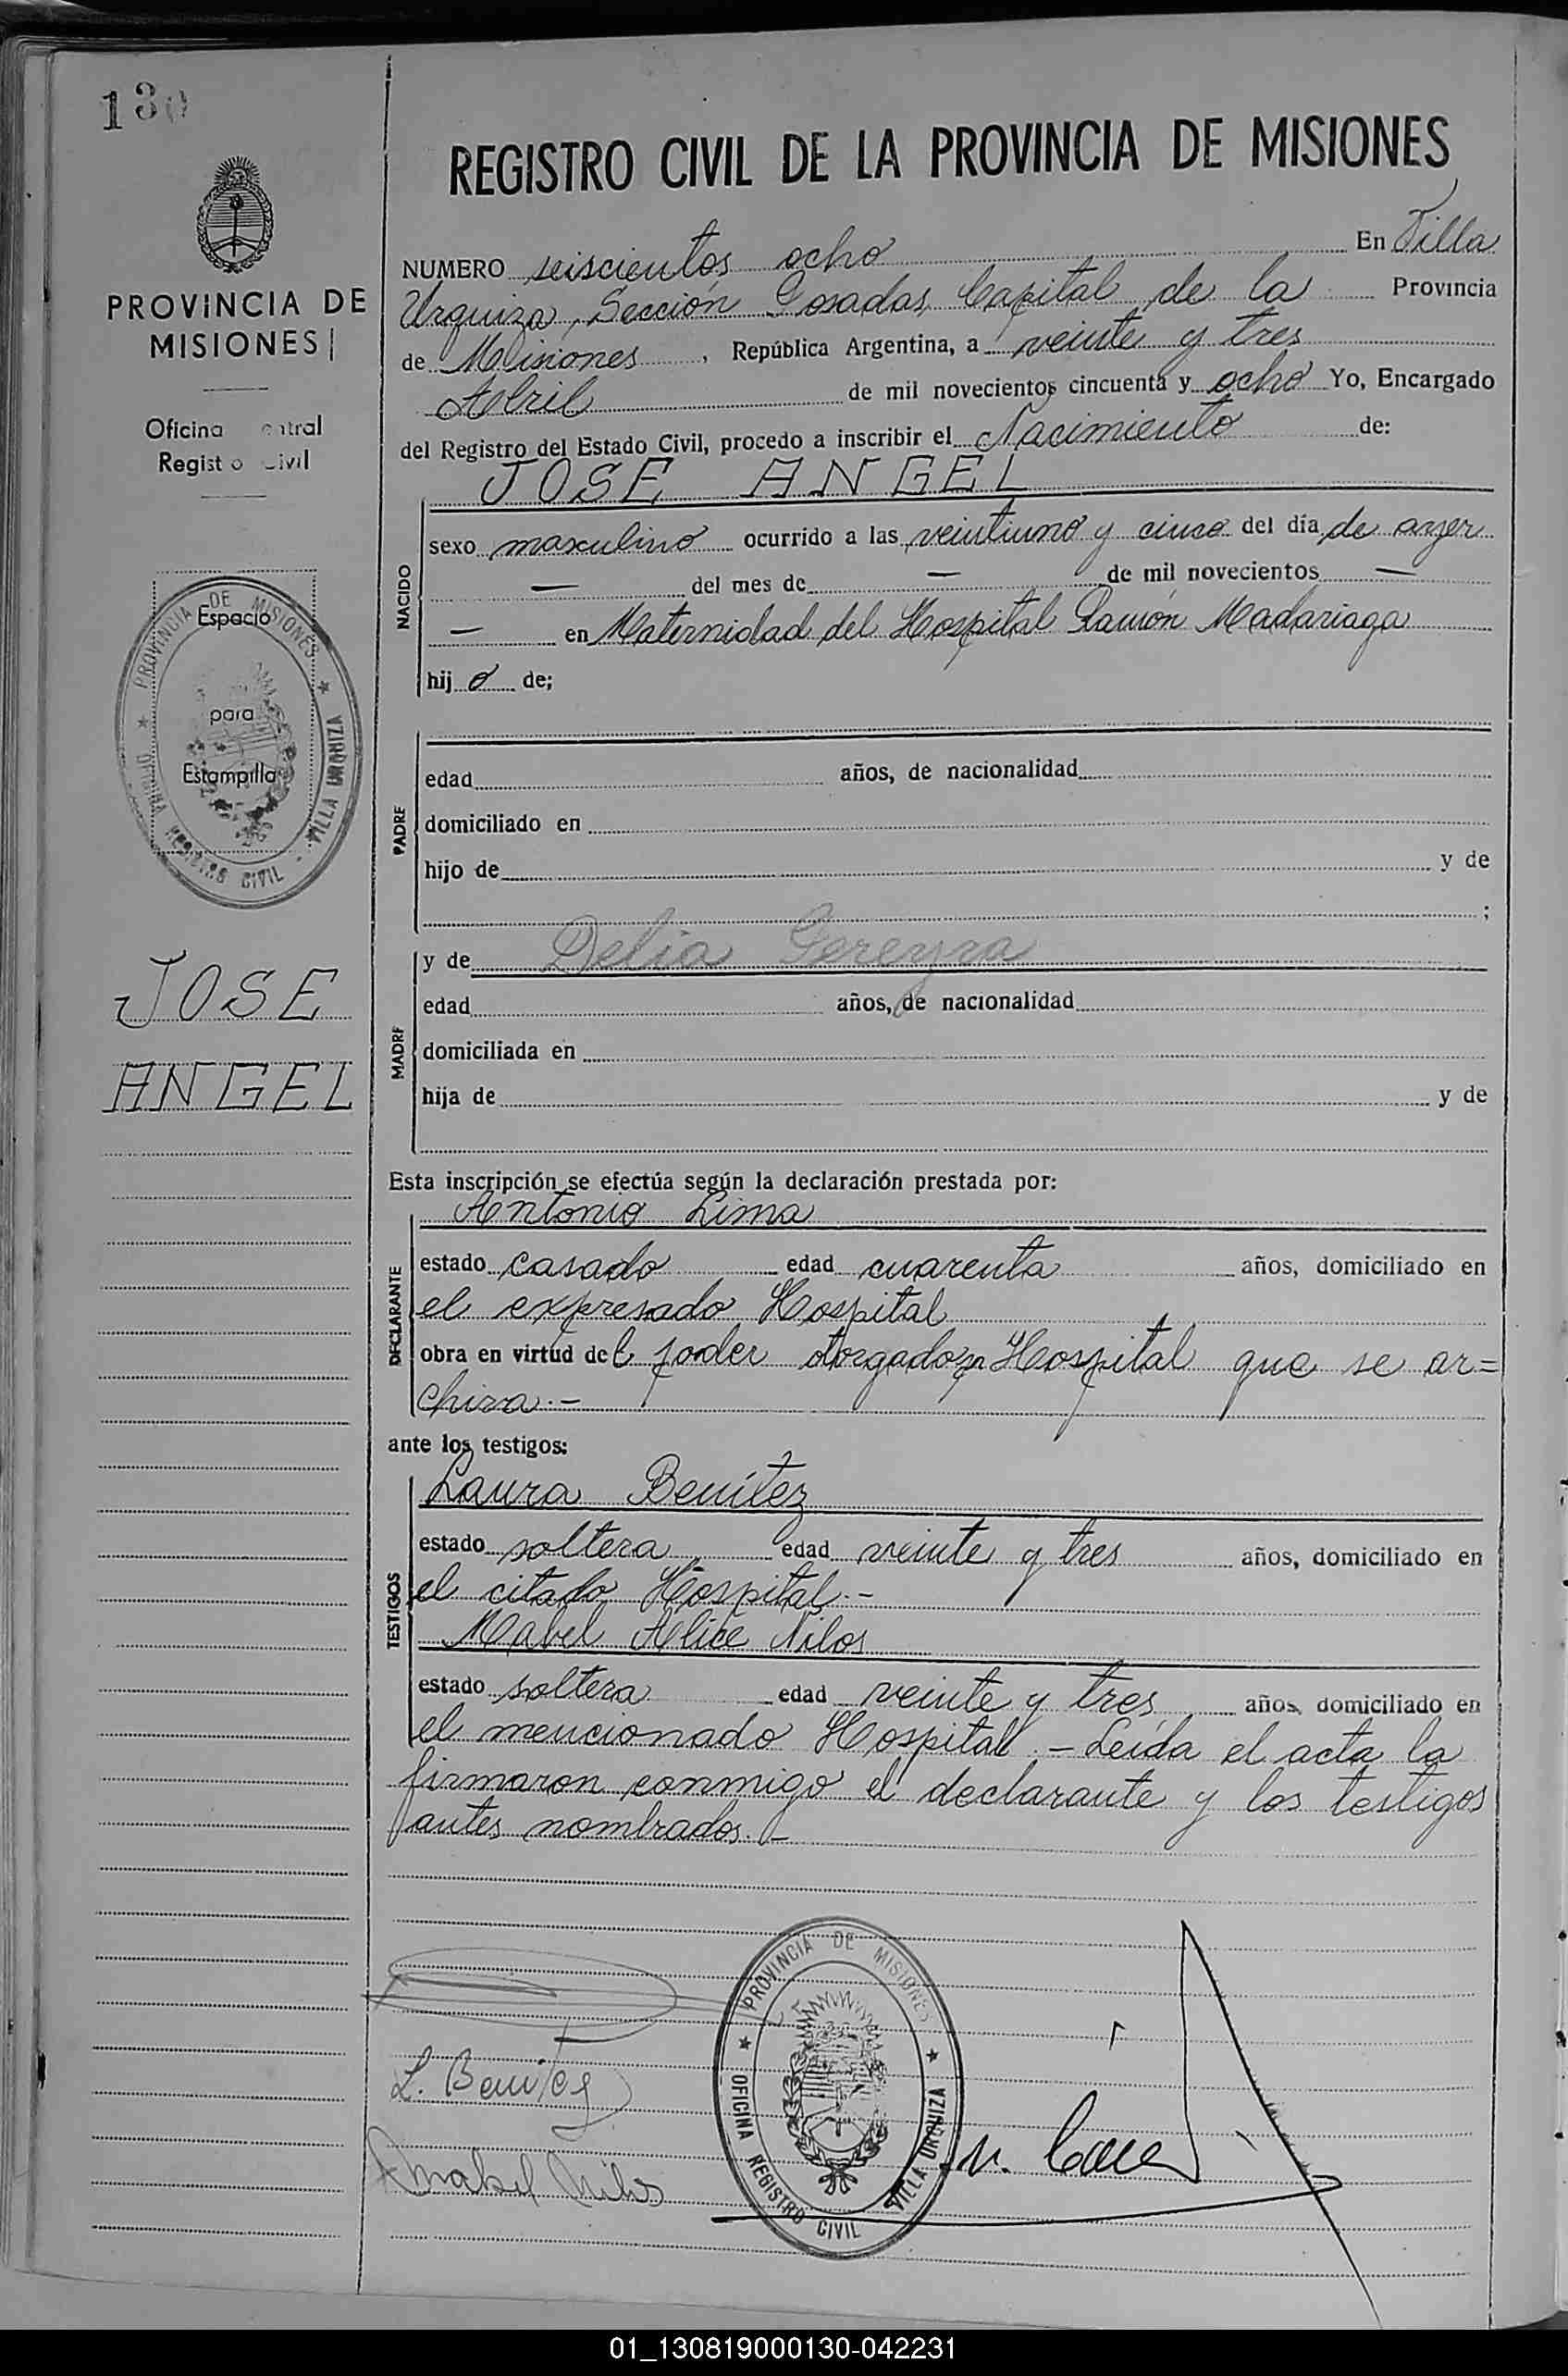 130
REGISTRO CIVIL DE LA PROVINCIA DE MISIONES
PROVINCIA DE
MISIONES
Oficina ntral
Regist o ivil
PROVINCIA DE MISIONES
OFICINA REGISTRO CIVIL - VILLA URQUIZA
Espacio
para
Estampilla
JOSE
ANGEL
NUMERO seiscientos ocho En Villa
Urquiza, Sección Posadas, Capital de la Provincia
de Misiones, República Argentina, a veinte y tres
Abril de mil novecientos cincuenta y ocho Yo, Encargado
del Registro del Estado Civil, procedo a inscribir el Nacimiento de:
JOSE ANGEL
NACIDO
sexo masculino ocurrido a las veintiuno y cinco del día de ayer
— del mes de — de mil novecientos —
— en Maternidad del Hospital Ramón Madariaga
hij o de;
PADRE
edad años, de nacionalidad
domiciliado en
hijo de y de
;
MADRE
y de Delia Pereyra
edad años, de nacionalidad
domiciliada en
hija de y de
Esta inscripción se efectúa según la declaración prestada por:
DECLARANTE
Antonio Lima
estado casado edad cuarenta años, domiciliado en
el expresado Hospital
obra en virtud del poder otorgado Hospital que se ar=
chiva.-
ante los testigos:
TESTIGOS
Laura Benítez
estado soltera edad veinte y tres años, domiciliado en
el citado Hospital.-
Mabel Alice Nilos
estado soltera edad veinte y tres años, domiciliado en
el mencionado Hospital.- Leída el acta la
firmaron conmigo el declarante y los testigos
antes nombrados.-
L. Benitez
PROVINCIA DE MISIONES
OFICINA REGISTRO CIVIL VILLA URQUIZA
01_130819000130-042231